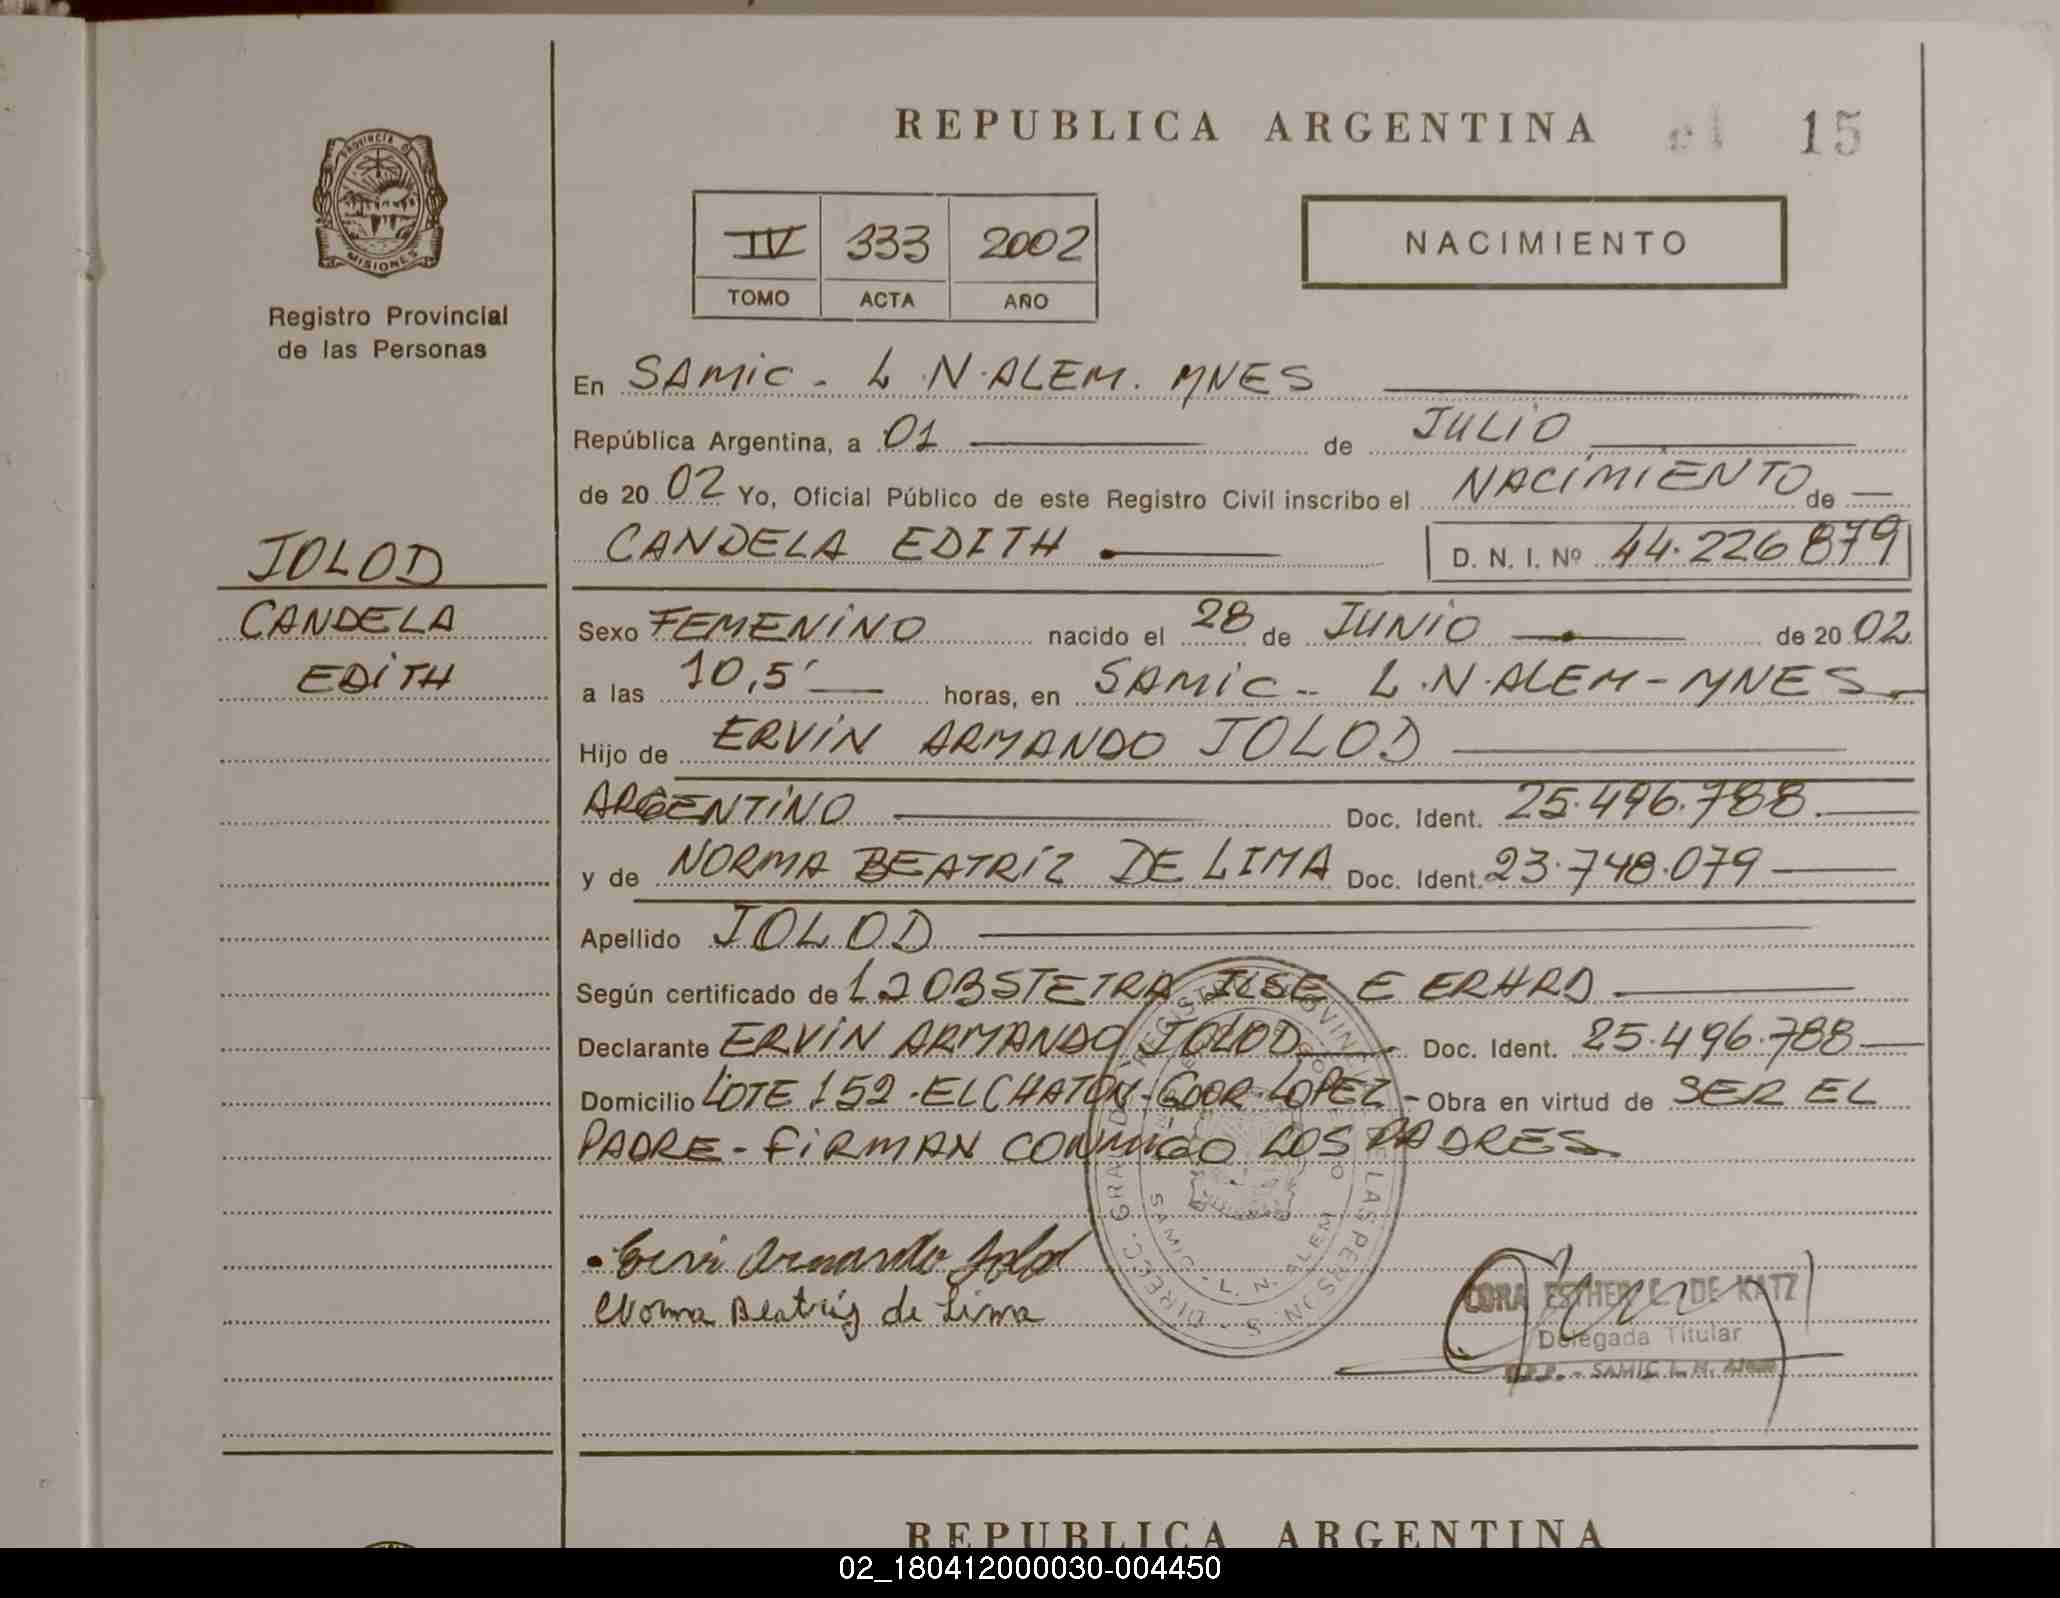 REPUBLICA ARGENTINA
15
PROVINCIA DE
MISIONES
Registro Provincial
de las Personas
IV 333 2002
TOMO ACTA AÑO
NACIMIENTO
En SAMIC - L.N.ALEM. MNES
República Argentina, a 01 de JULIO
de 20 02 Yo, Oficial Público de este Registro Civil inscribo el NACIMIENTO de
CANDELA EDITH D. N. I. Nº 44.226879
JOLOD
CANDELA
EDITH
Sexo FEMENINO nacido el 28 de JUNIO de 20 02
a las 10,5' horas, en SAMIC - L.N.ALEM - MNES
Hijo de ERVIN ARMANDO JOLOD
ARGENTINO Doc. Ident. 25.496.788
y de NORMA BEATRIZ DE LIMA Doc. Ident. 23.748.079
Apellido JOLOD
Según certificado de LA OBSTETRA ILSE E ERHRD
Declarante ERVIN ARMANDO JOLOD Doc. Ident. 25.496.788
Domicilio LOTE 152 - EL CHATON - GDOR. LOPEZ - Obra en virtud de SER EL
PADRE - FIRMAN CONMIGO LOS PADRES
Ervin Armando Jolod
Norma Beatriz de Lima
DIREC. GRAL. DEL REGISTRO PROVINCIAL DE LAS PERSONAS
SAMIC - L. N. ALEM
CORA ESTHER E. DE KATZ
Delegada Titular
R.P.P. - SAMIC L. N. Alem
REPUBLICA ARGENTINA
02_180412000030-004450